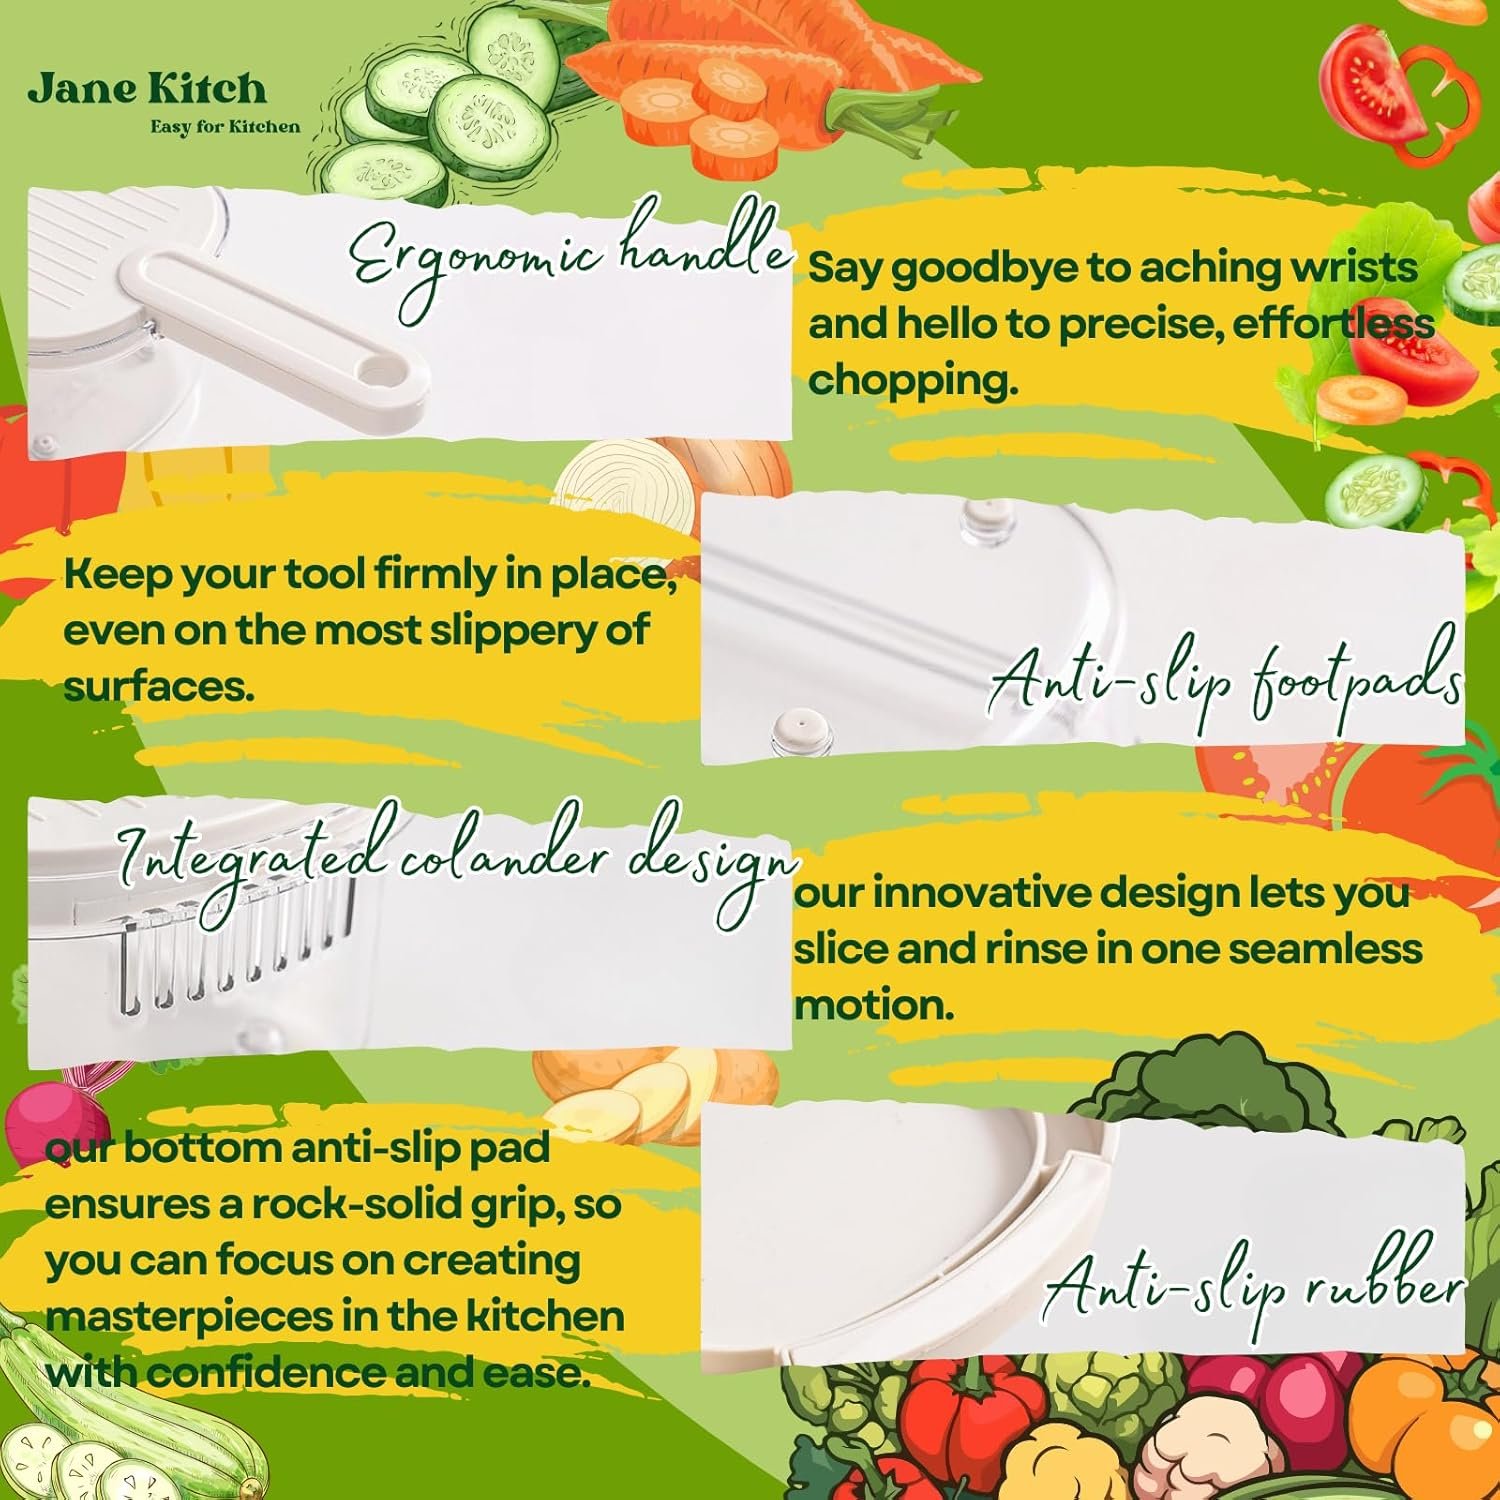 Jane Kitch
Easy for Kitchen
Ergonomic handle
Say goodbye to aching wrists
and hello to precise, effortless
chopping.
Keep your tool firmly in place,
even on the most slippery of
surfaces.
Anti-slip footpads
Integrated colander design
our innovative design lets you
slice and rinse in one seamless
motion.
our bottom anti-slip pad
ensures a rock-solid grip, so
you can focus on creating
masterpieces in the kitchen
with confidence and ease.
Anti-slip rubber